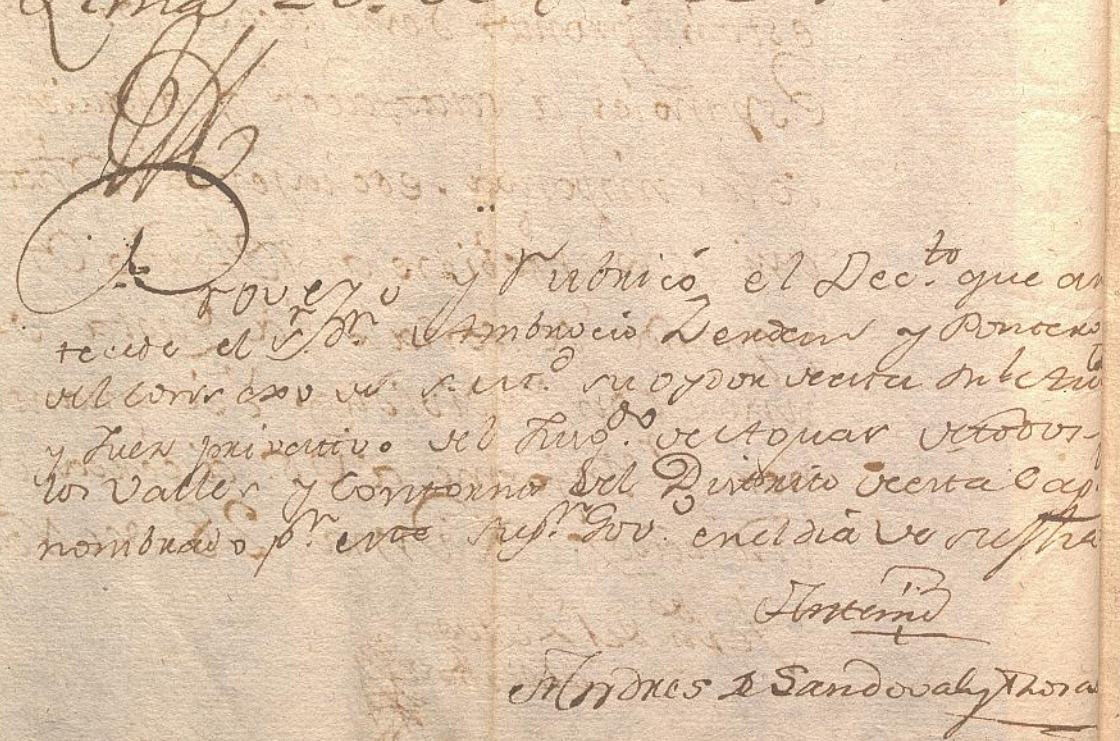 Lima
Proveyo y rubricó el Dec.to que an
tecede el S.r D.r D. Ambrocio Zerdan y Pontero
del Consexo de S. M.d su oydor de esta Rl Au.a
y Juez privativo del Juzg.do de Aguas de todos
los Valles y Contorno del Distrito de esta Cap.l
nombrado p.r este Sup.r Gov.o en el dia de su fha
Antemi
Andres de Sandoval y Thora